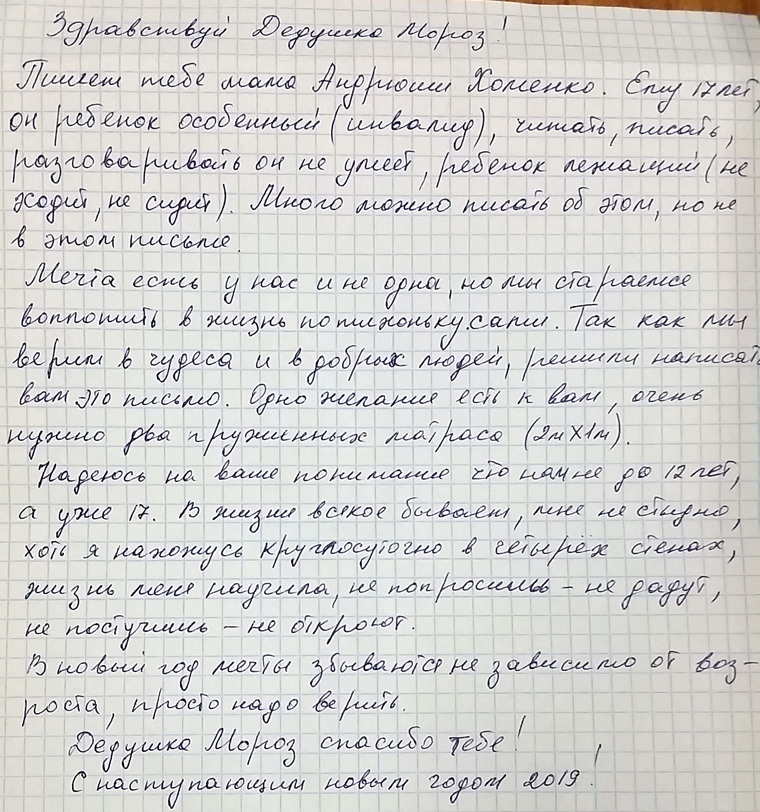 Здравствуй Дедушка Мороз!
Пишет тебе мама Андрюши Хоменко. Ему 17 лет,
он ребенок особенный (инвалид), читать, писать,
разговаривать он не умеет, ребенок лежащий (не
ходит, не сидит). Много можно писать об этом, но не
в этом письме.
Мечта есть у нас и не одна, но мы стараемсе
воплотить в жизнь потихоньку сами. Так как мы
верим в чудеса и в добрых людей, решили написать
вам это письмо. Одно желание есть к вам, очень
нужно два пружинных матраса (2м X 1м).
Надеюсь на ваше понимание что нам не до 12 лет,
а уже 17. В жизни всякое бывает, мне не стыдно,
хоть я нахожусь круглосуточно в четырёх стенах,
жизнь меня научила, не попросишь – не дадут,
не постучишь – не откроют.
В новый год мечты збываются не зависимо от воз-
роста, просто надо верить.
Дедушка Мороз спасибо тебе!
С наступающим новым годом 2019!